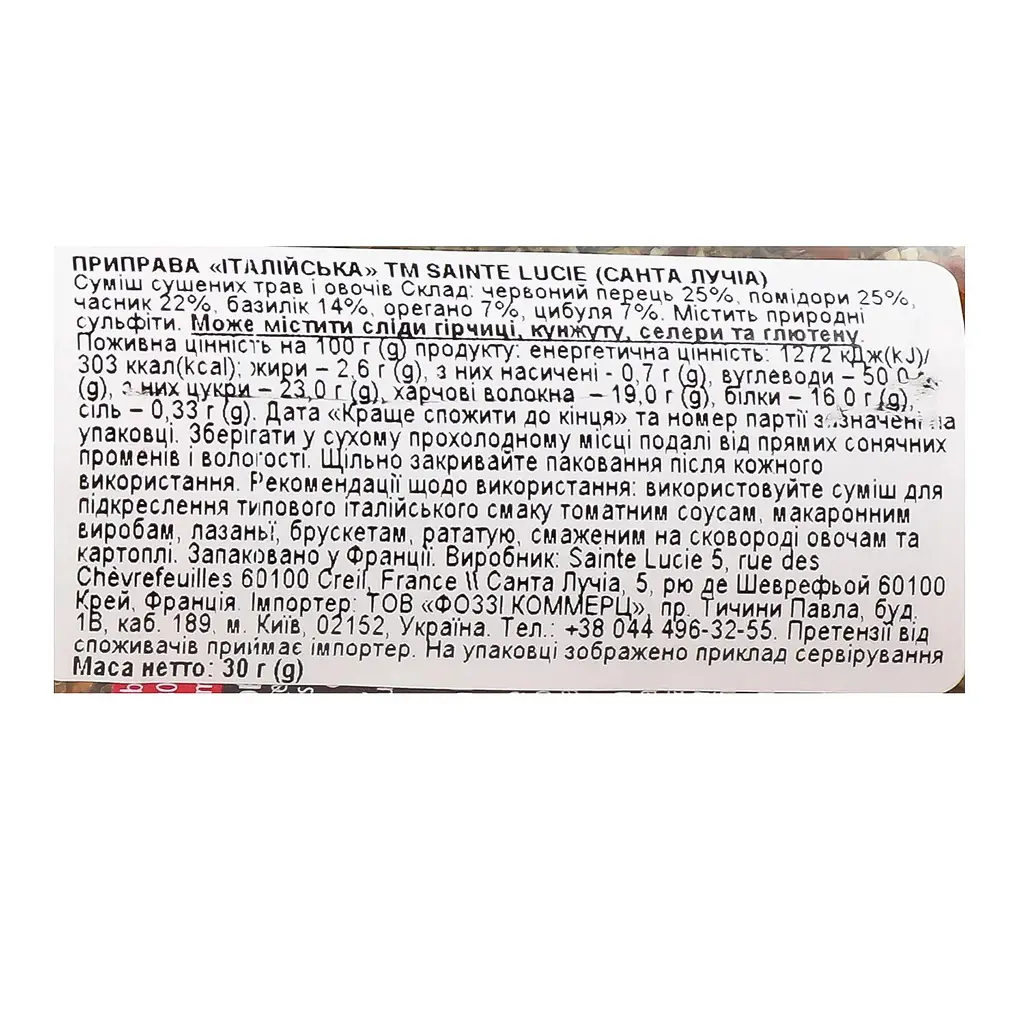 ПРИПРАВА «ІТАЛІЙСЬКА» ТМ SAINTE LUCIE (САНТА ЛУЧІА)
Суміш сушених трав і овочів Склад: червоний перець 25%, помідори 25%,
часник 22%, базилік 14%, орегано 7%, цибуля 7%. Містить природні
сульфіти. Може містити сліди гірчиці, кунжуту, селери та глютену.
Поживна цінність на 100 г (g) продукту: енергетична цінність: 1272 кДж(kJ)/
303 ккал(kcal); жири – 2,6 г (g), з них насичені - 0,7 г (g), вуглеводи – 50,0
(g), з них цукри – 23,0 г (g), харчові волокна – 19,0 г (g), білки – 16,0 г (g),
сіль – 0,33 г (g). Дата «Краще спожити до кінця» та номер партії зазначені на
упаковці. Зберігати у сухому прохолодному місці подалі від прямих сонячних
променів і вологості. Щільно закривайте паковання після кожного
використання. Рекомендації щодо використання: використовуйте суміш для
підкреслення типового італійського смаку томатним соусам, макаронним
виробам, лазаньї, брускетам, рататую, смаженим на сковороді овочам та
картоплі. Запаковано у Франції. Виробник: Sainte Lucie 5, rue des
Chèvrefeuilles 60100 Creil, France \\ Санта Лучіа, 5, рю де Шеврефьой 60100
Крей, Франція. Імпортер: ТОВ «ФОЗЗІ КОММЕРЦ», пр. Тичини Павла, буд.
1В, каб. 189, м. Київ, 02152, Україна. Тел.: +38 044 496-32-55. Претензії від
споживачів приймає імпортер. На упаковці зображено приклад сервірування
Маса нетто: 30 г (g)